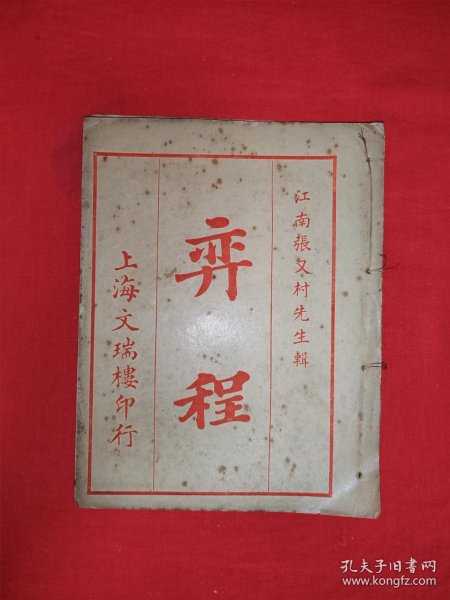 江南張又村先生輯
弈程
上海文瑞樓印行
孔夫子旧书网
www.kongfz.com